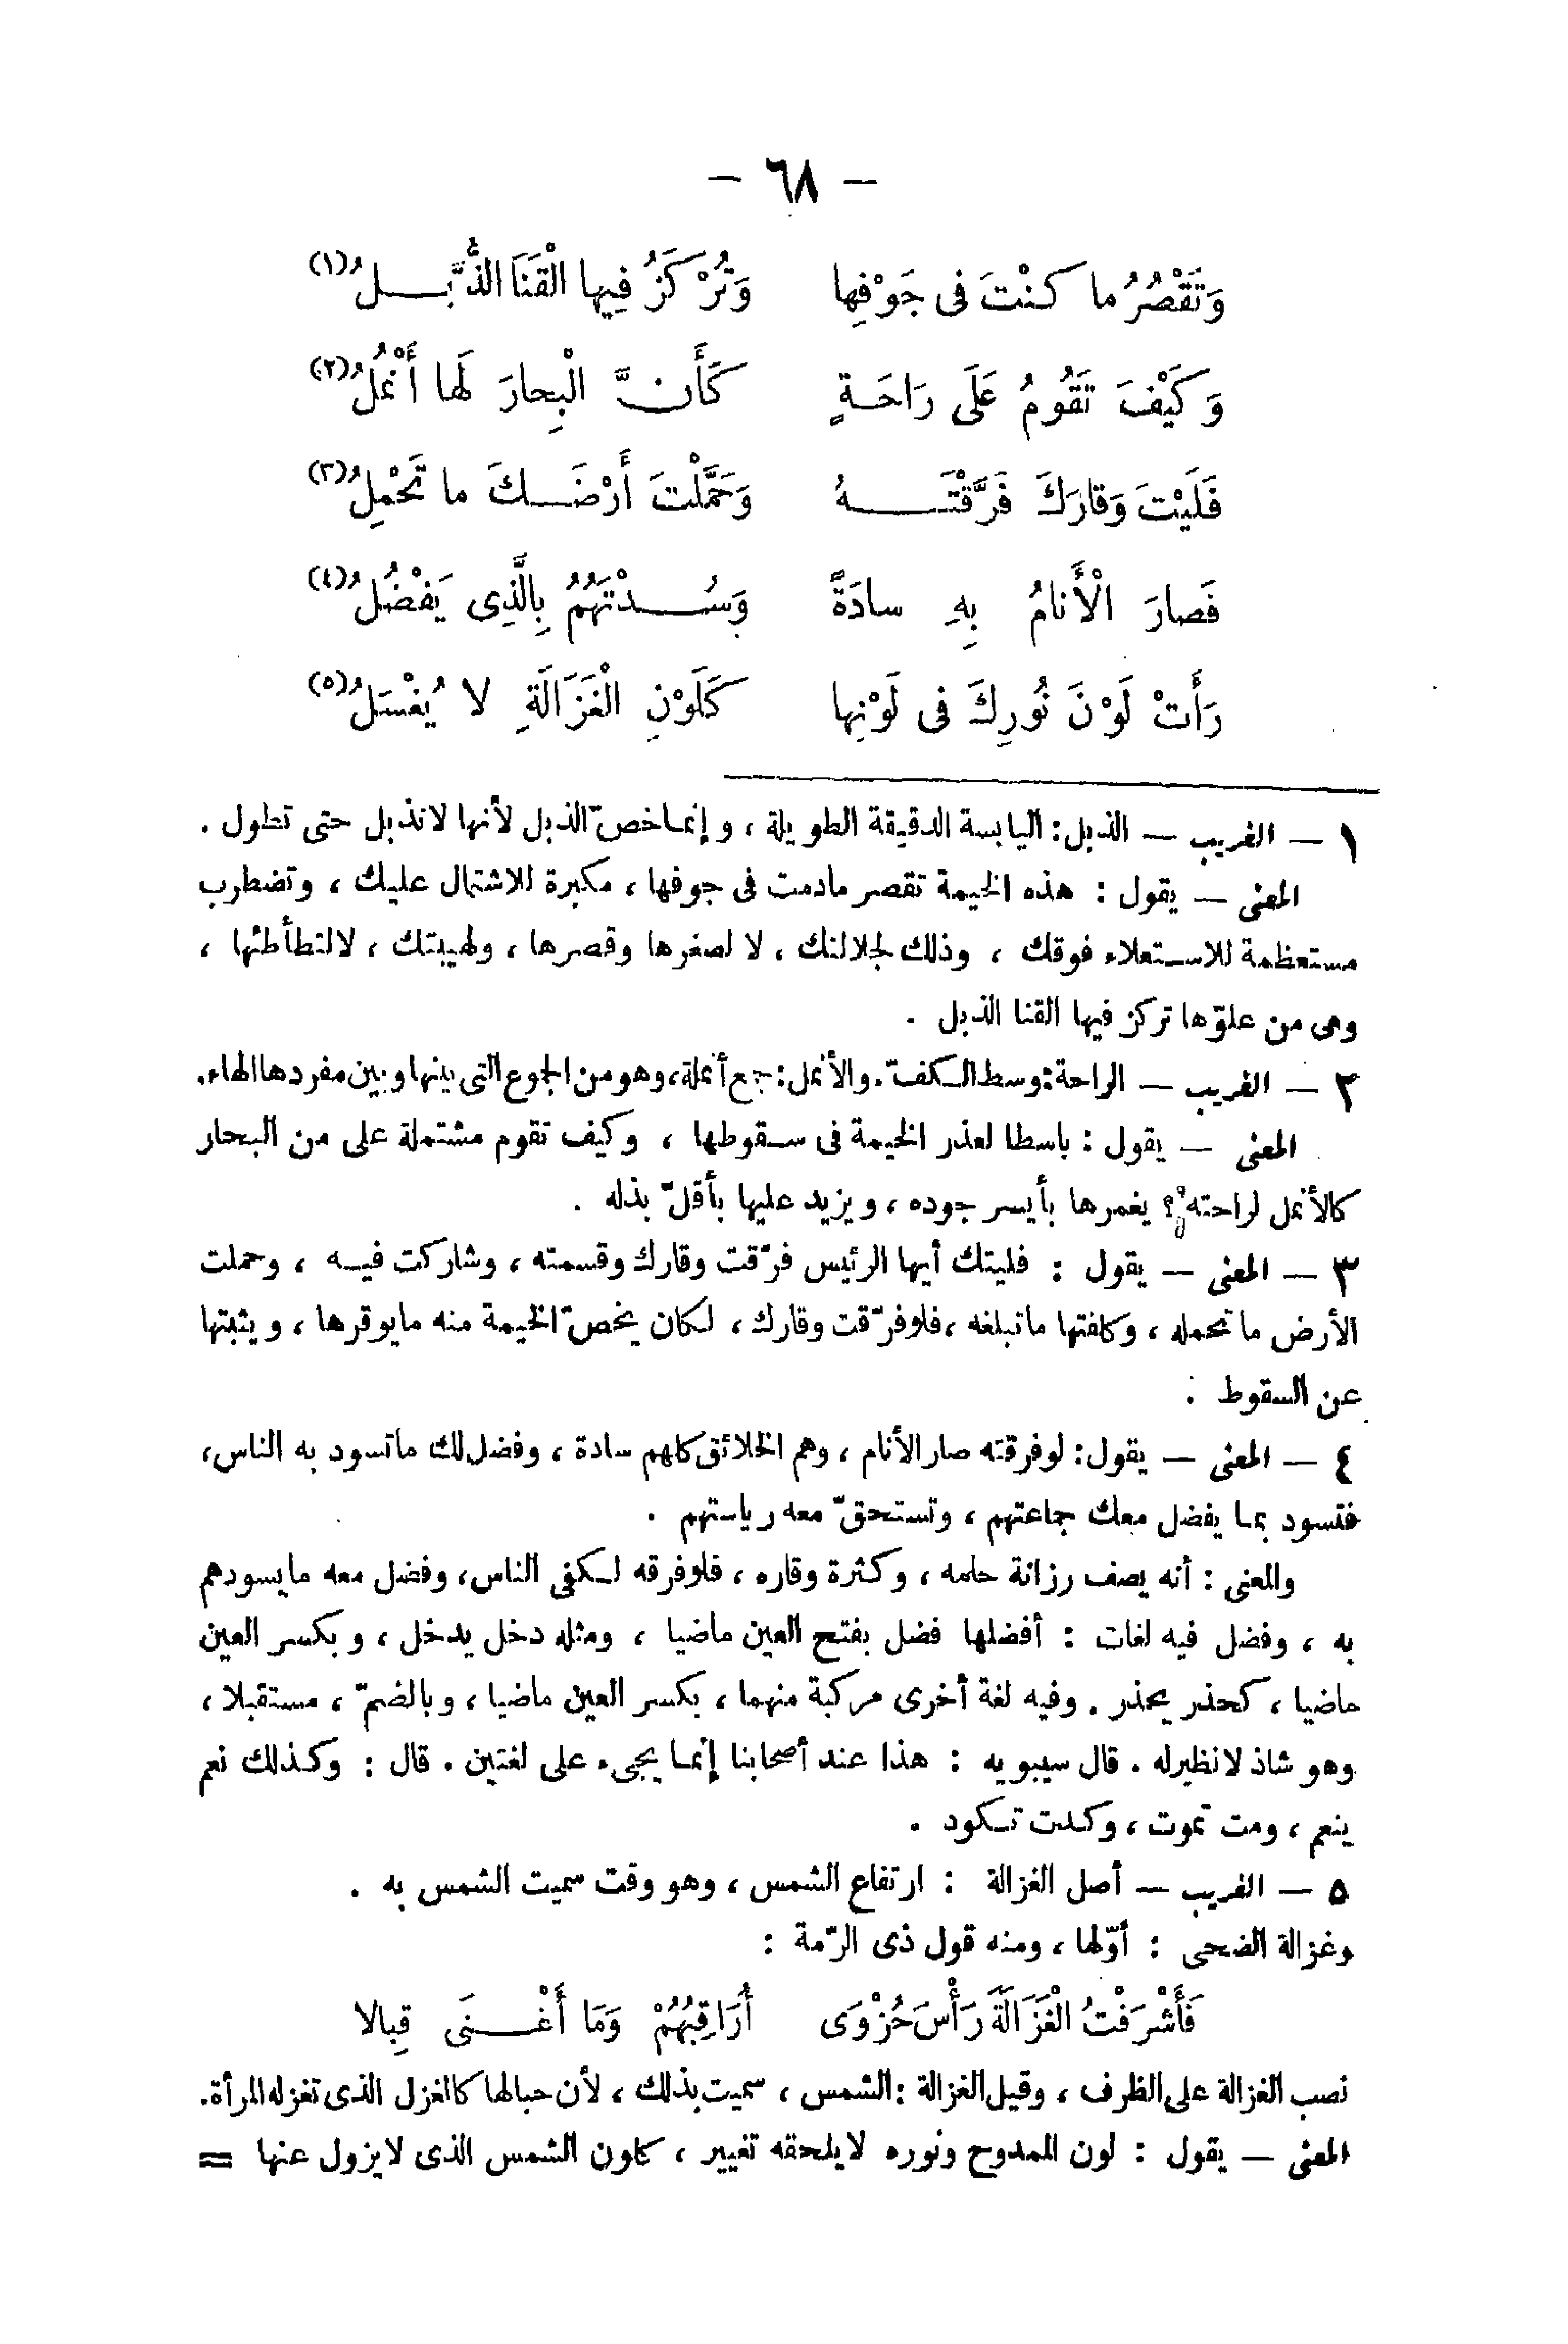 – ٦٨ –
وَتَقْصُرُ ما كنْتَ فى جَوْفِها وَتُرْكَزُ فِيها الْقَنَا الذُّبَّـلُ(١)
وَكَيْفَ تَقُومُ عَلَى رَاحَـةٍ كَأَنَّ الْبِحارَ لَها أَنْمُلُ(٢)
فَلَيْتَ وَقارَكَ فَرَّقْتَـهُ وَحَمَّلْتَ أَرْضَـكَ ما تَحْمِلُ(٣)
فَصارَ الْأَنامُ بِهِ سادَةً وَسُـدْتَهُمُ بِالَّذِى يَفْضُلُ(٤)
رَأَتْ لَوْنَ نُورِكَ فى لَوْنِها كَلَوْنِ الْغَزَالَةِ لا يُغْسَلُ(٥)
١ – الغريب – الذبل: اليابسة الدقيقة الطويلة ، وإنما خصّ الذبل لأنها لا تذبل حتى تطول .
المعنى – يقول : هذه الخيمة تقصر مادمت فى جوفها ، مكبرة للاشتمال عليك ، وتضطرب
مستعظمة للاستعلاء فوقك ، وذلك لجلالتك ، لا لصغرها وقصرها ، ولهيبتك ، لا لتطأطئها ،
وهى من علوّها تركز فيها القنا الذبل .
٢ – الغريب – الراحة: وسط الكفّ. والأنمل: جمع أنملة، وهو من الجموع التى بينها وبين مفردها الهاء.
المعنى – يقول : باسطا لعذر الخيمة فى سقوطها ، وكيف تقوم مشتملة على من البحار
كالأنمل لراحته ؟ يغمرها بأيسر جوده ، ويزيد عليها بأقلّ بذله .
٣ – المعنى – يقول : فليتك أيها الرئيس فرّقت وقارك وقسمته ، وشاركت فيـه ، وحملت
الأرض ما تحمله ، وكلفتها ما تبلغه ، فلو فرّقت وقارك ، لكان يخصّ الخيمة منه ما يوقرها ، ويثبتها
عن السقوط .
٤ – المعنى – يقول: لو فرقته صار الأنام ، وهم الخلائق كلهم سادة ، وفضل لك ما تسود به الناس،
فتسود بما يفضل معك جماعتهم ، وتستحقّ معه رياستهم .
والمعنى : أنه يصف رزانة حلمه ، وكثرة وقاره ، فلو فرقه لكفى الناس، وفضل معه ما يسودهم
به ، وفضل فيه لغات : أفضلها فضل بفتح العين ماضيا ، ومثله دخل يدخل ، وبكسر العين
ماضيا ، كحذر يحذر . وفيه لغة أخرى مركبة منهما ، بكسر العين ماضيا ، وبالضمّ ، مستقبلا ،
وهو شاذ لا نظير له . قال سيبويه : هذا عند أصحابنا إنما يجىء على لغتين . قال : وكذلك نعم
ينعم ، ومت تموت ، وكدت تكود .
٥ – الغريب – أصل الغزالة : ارتفاع الشمس ، وهو وقت سميت الشمس به .
وغزالة الضحى : أوّلها ، ومنه قول ذى الرّمة :
فَأَشْرَفْتُ الْغَزَالَةَ رَأْسَ حُزْوَى أُرَاقِبُهُمْ وَمَا أَغْـنَى قِبالا
نصب الغزالة على الظرف ، وقيل الغزالة : الشمس ، سميت بذلك ، لأن حبالها كالغزل الذى تغزله المرأة.
المعنى – يقول : لون الممدوح ونوره لا يلحقه تغيير ، كلون الشمس الذى لا يزول عنها =